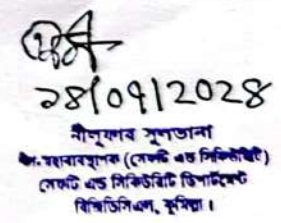 ২৪/০৭/২০২৪
সুলতানা
মহাব্যবস্থাপক (সেফটি এন্ড সিকিউরিটি)
সেফটি এন্ড সিকিউরিটি ডিপার্টমেন্ট
বিজিডিসিএল, কুমিল্লা।